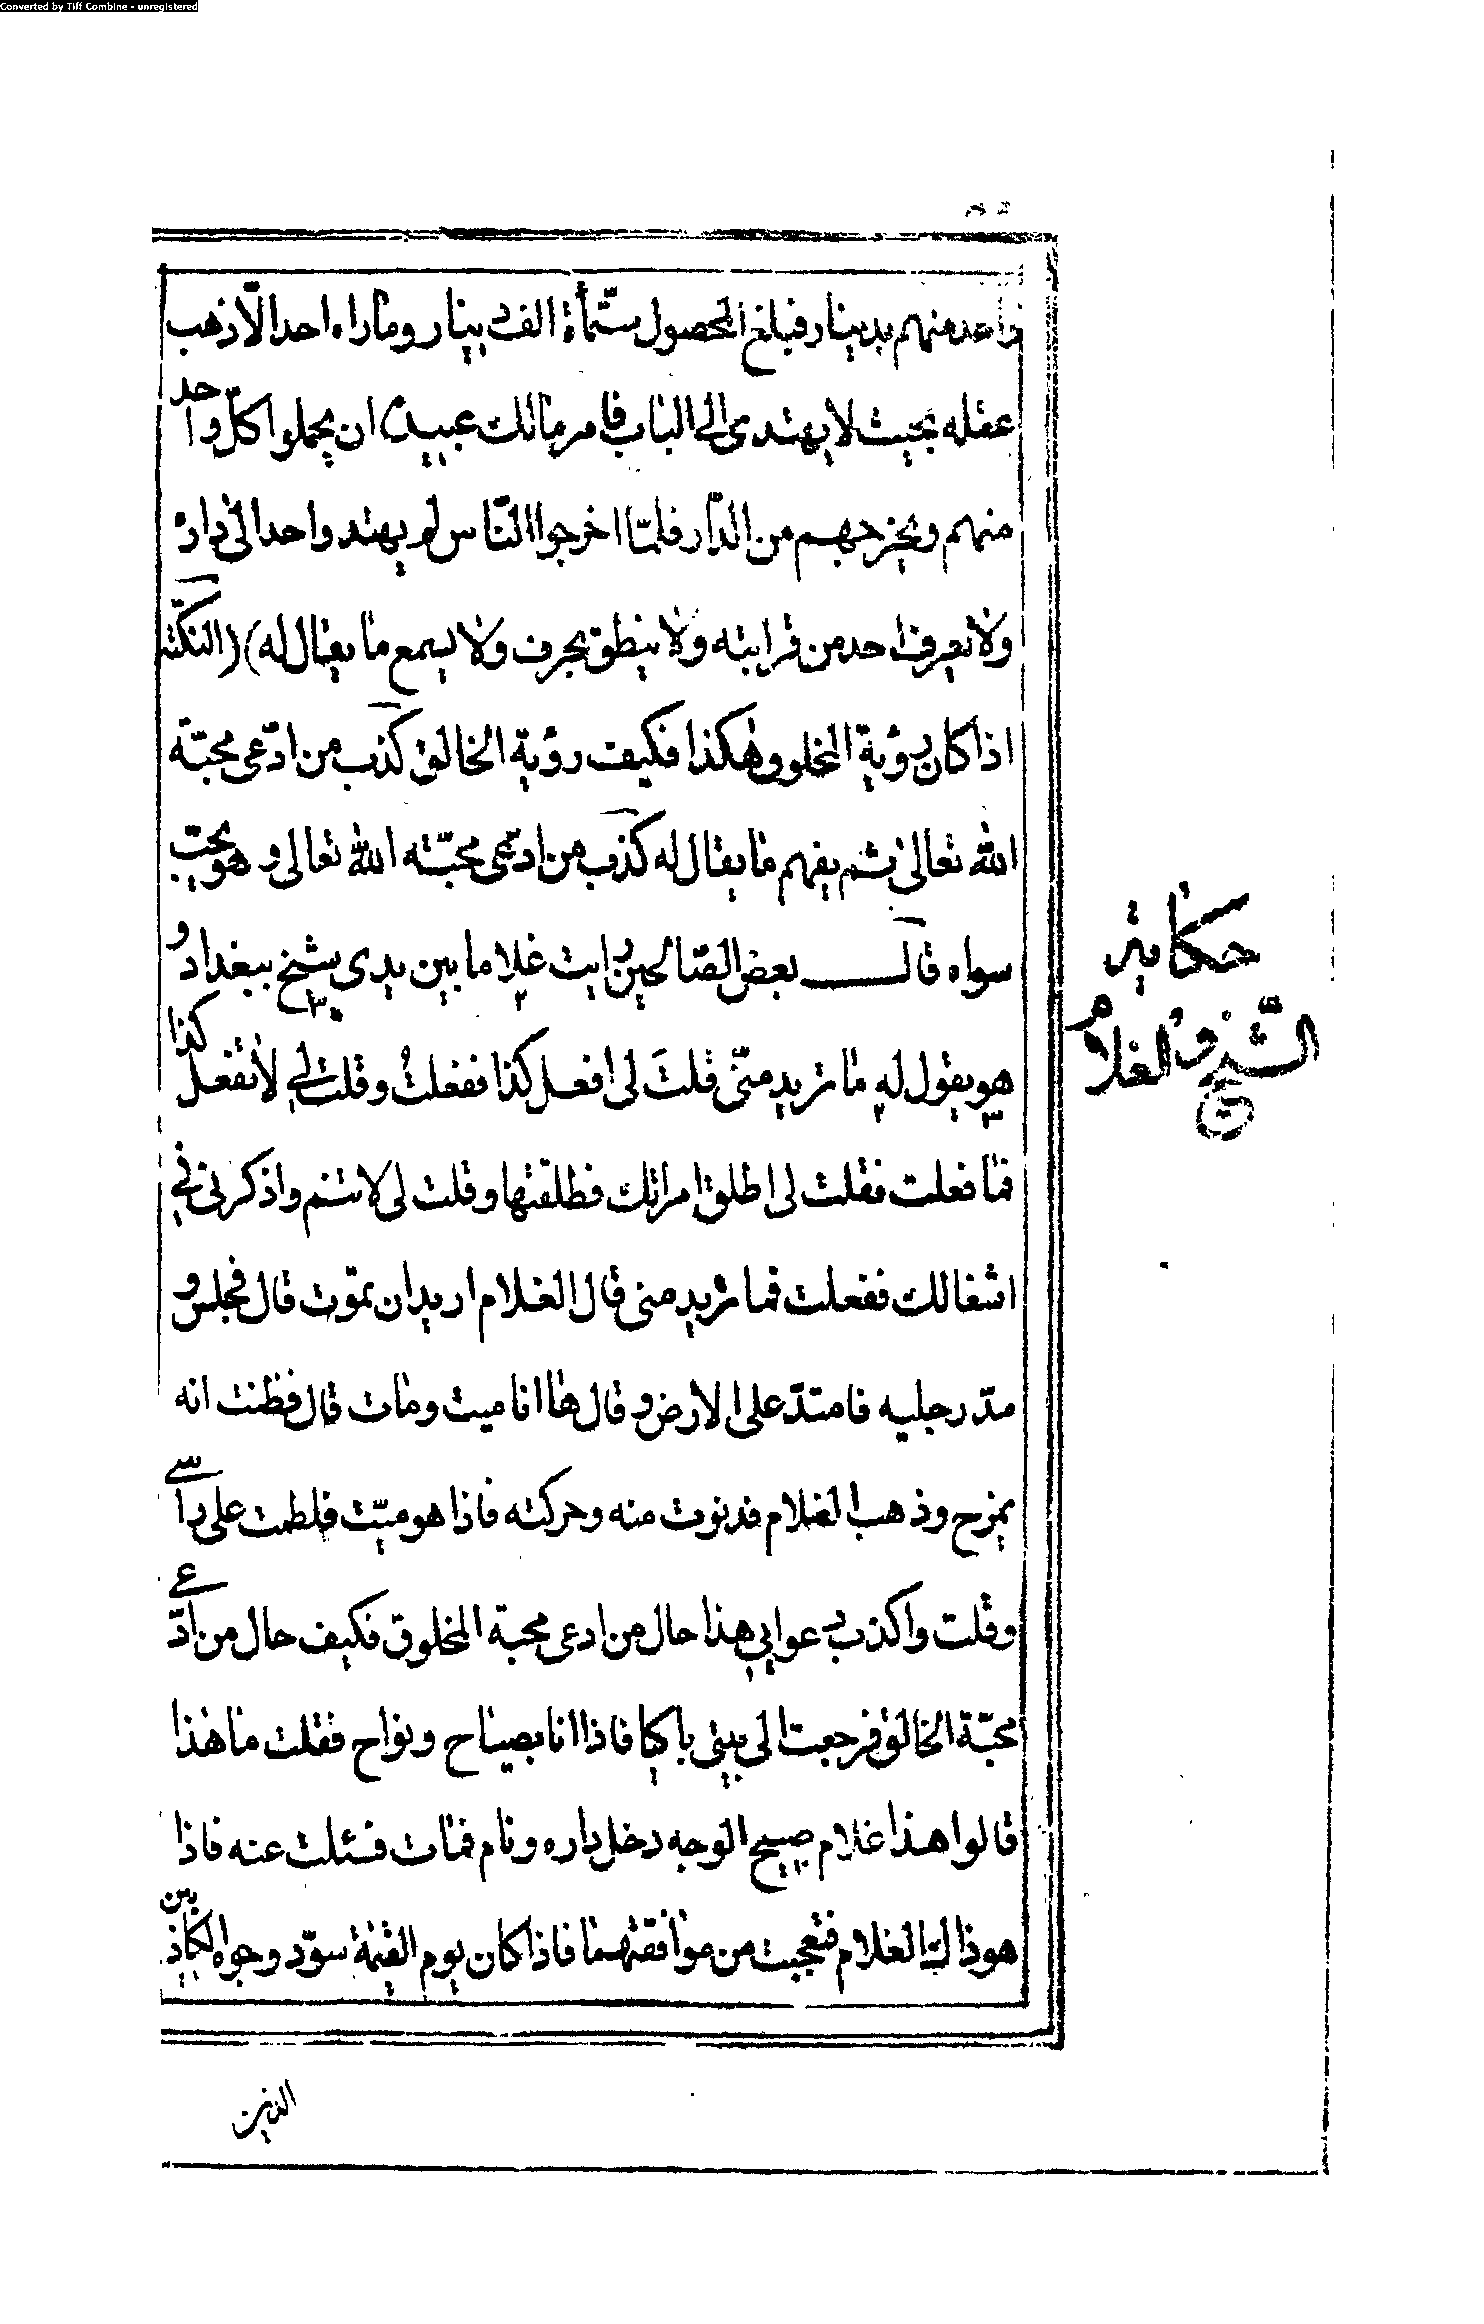 Converted by Tiff Combine - unregistered
واحد منهم بدينار فبلغ المحصول ستّمأة الف دينار وماراه احدا الّا ذهب
عقله بحيث لا يهتدى الى الباب فامر مالك عبيده ان يحملوا كلّ واحد
منهم ويخرجهم من الدّار فلمّا اخرجوا النّاس لم يهتد واحد الى داره
ولا تعرف احد من قرابته ولا ينطق بحرف ولا يسمع ما يقال له) (النكتة
اذا كان برؤية المخلوو هكذا فكيف رؤية الخالق كذب من ادّعى محبّة
الله تعالى ثم يفهم ما يقال له كذب من ادّعى محبّته الله تعالى و هو يحبّ
سواه قال بعض الصّالحين رايت غلاما بين يدى شيخ ببغداد و
هو يقول له ما تريد منّى قلتَ لى افعل كذا ففعلتُ وقلت لى لا تفعل كذا
فما فعلت فقلت لى اطلق امراتك فطلقتها وقلت لى لا تنم واذكرنى فى
اشغالك ففعلت فما تريد منى قال الغلام اريد ان تموت قال فجلس و
مدّ رجليه فامتدّ على الارض و قال ها انا ميت ومات قال فظنت انه
يمزح وذهب الغلام فدنوت منه وحركته فاذا هو ميّت فلطمت على راسى
وقلت واكذب دعوايى هذا حال من ادعى محبة المخلوق فكيف حال من ادّعى
محبّة الخالق فرجعت الى بيتى باكيا فاذا انا بصياح ونواح فقلت ما هذا
قالوا هذا غلام صبيح الوجه دخل داره ونام فمات فسئلت عنه فاذا
هو ذاك الغلام فتعجبت من موافقتهما فاذا كان يوم القيمة سوّد وجواه الكاذبين
حكاية
الشّيخ والغلام
الذين